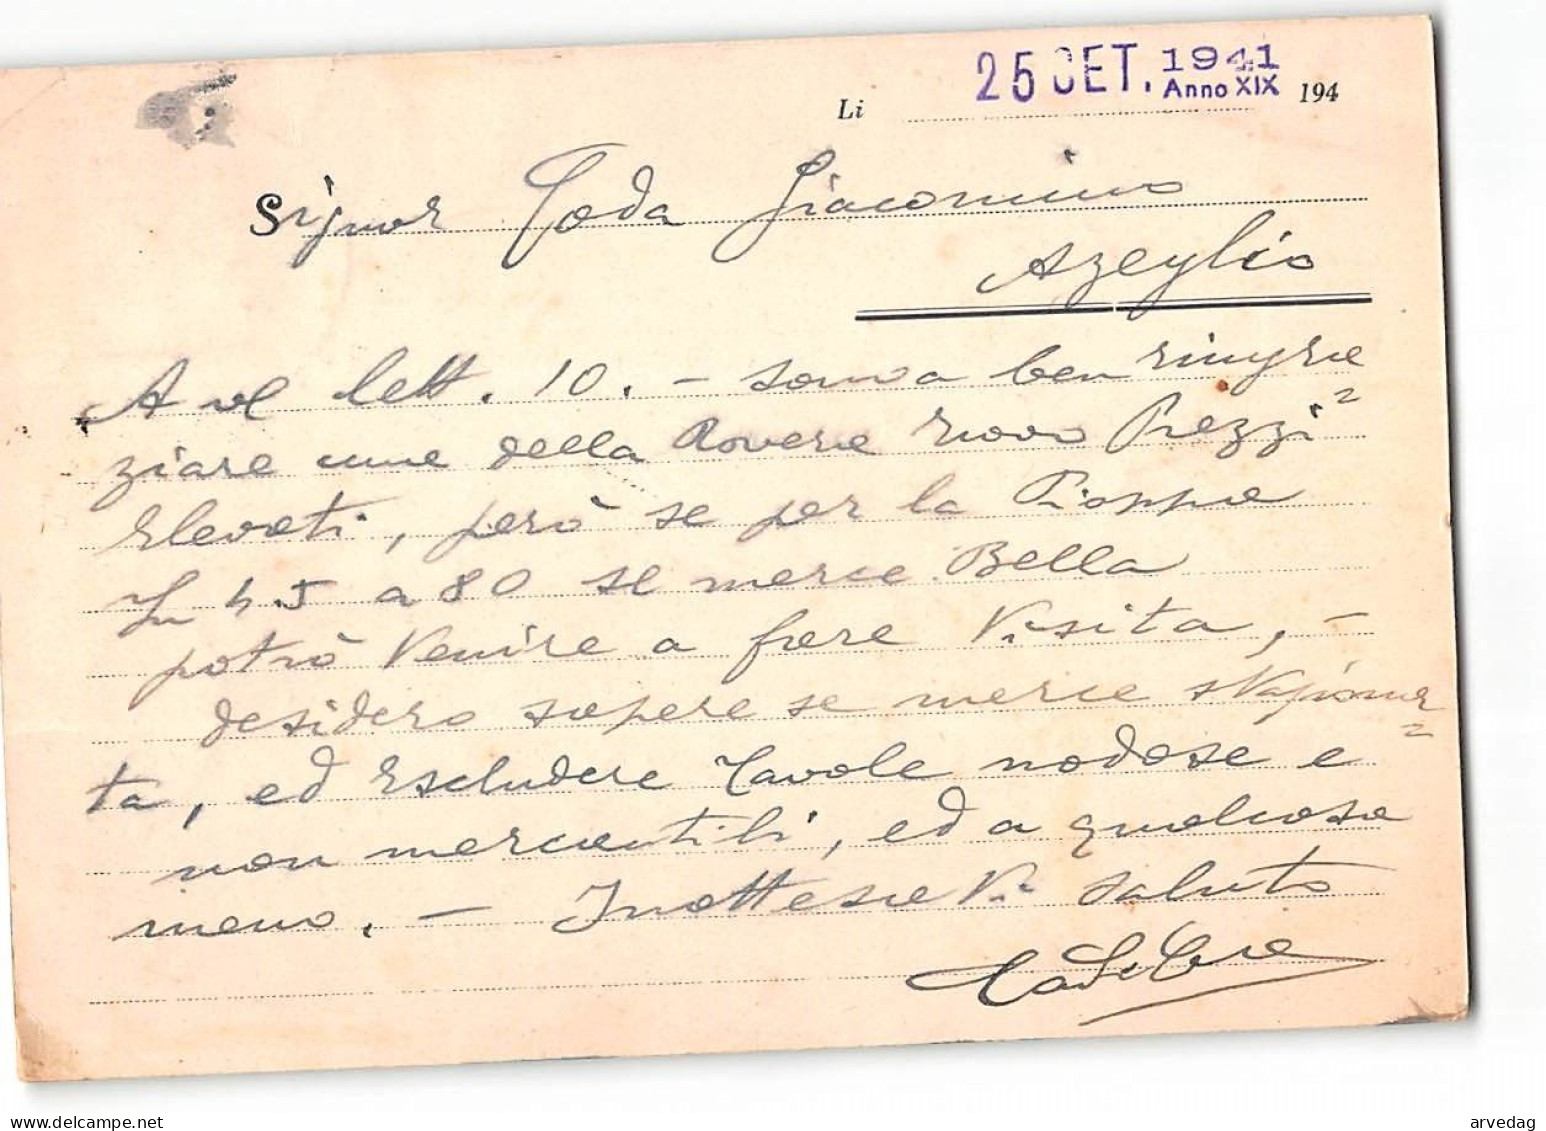 Li 25 SET. 1941 Anno XIX 194
Signor Coda Giacomino
Azeglio
A vs lett. 10. - sono a ben ringra=
ziare che della Rovere trovo Prezzi
Elevati, però se per la Pioppa
In 45 a 80 se merce Bella
potrò Venire a fare Visita, -
desidero sapere se merce stagiona=
ta, ed Escludere Tavole nodose e
non mercantili, ed a qualcosa
meno. - In attesa Vi saluto
arvedag